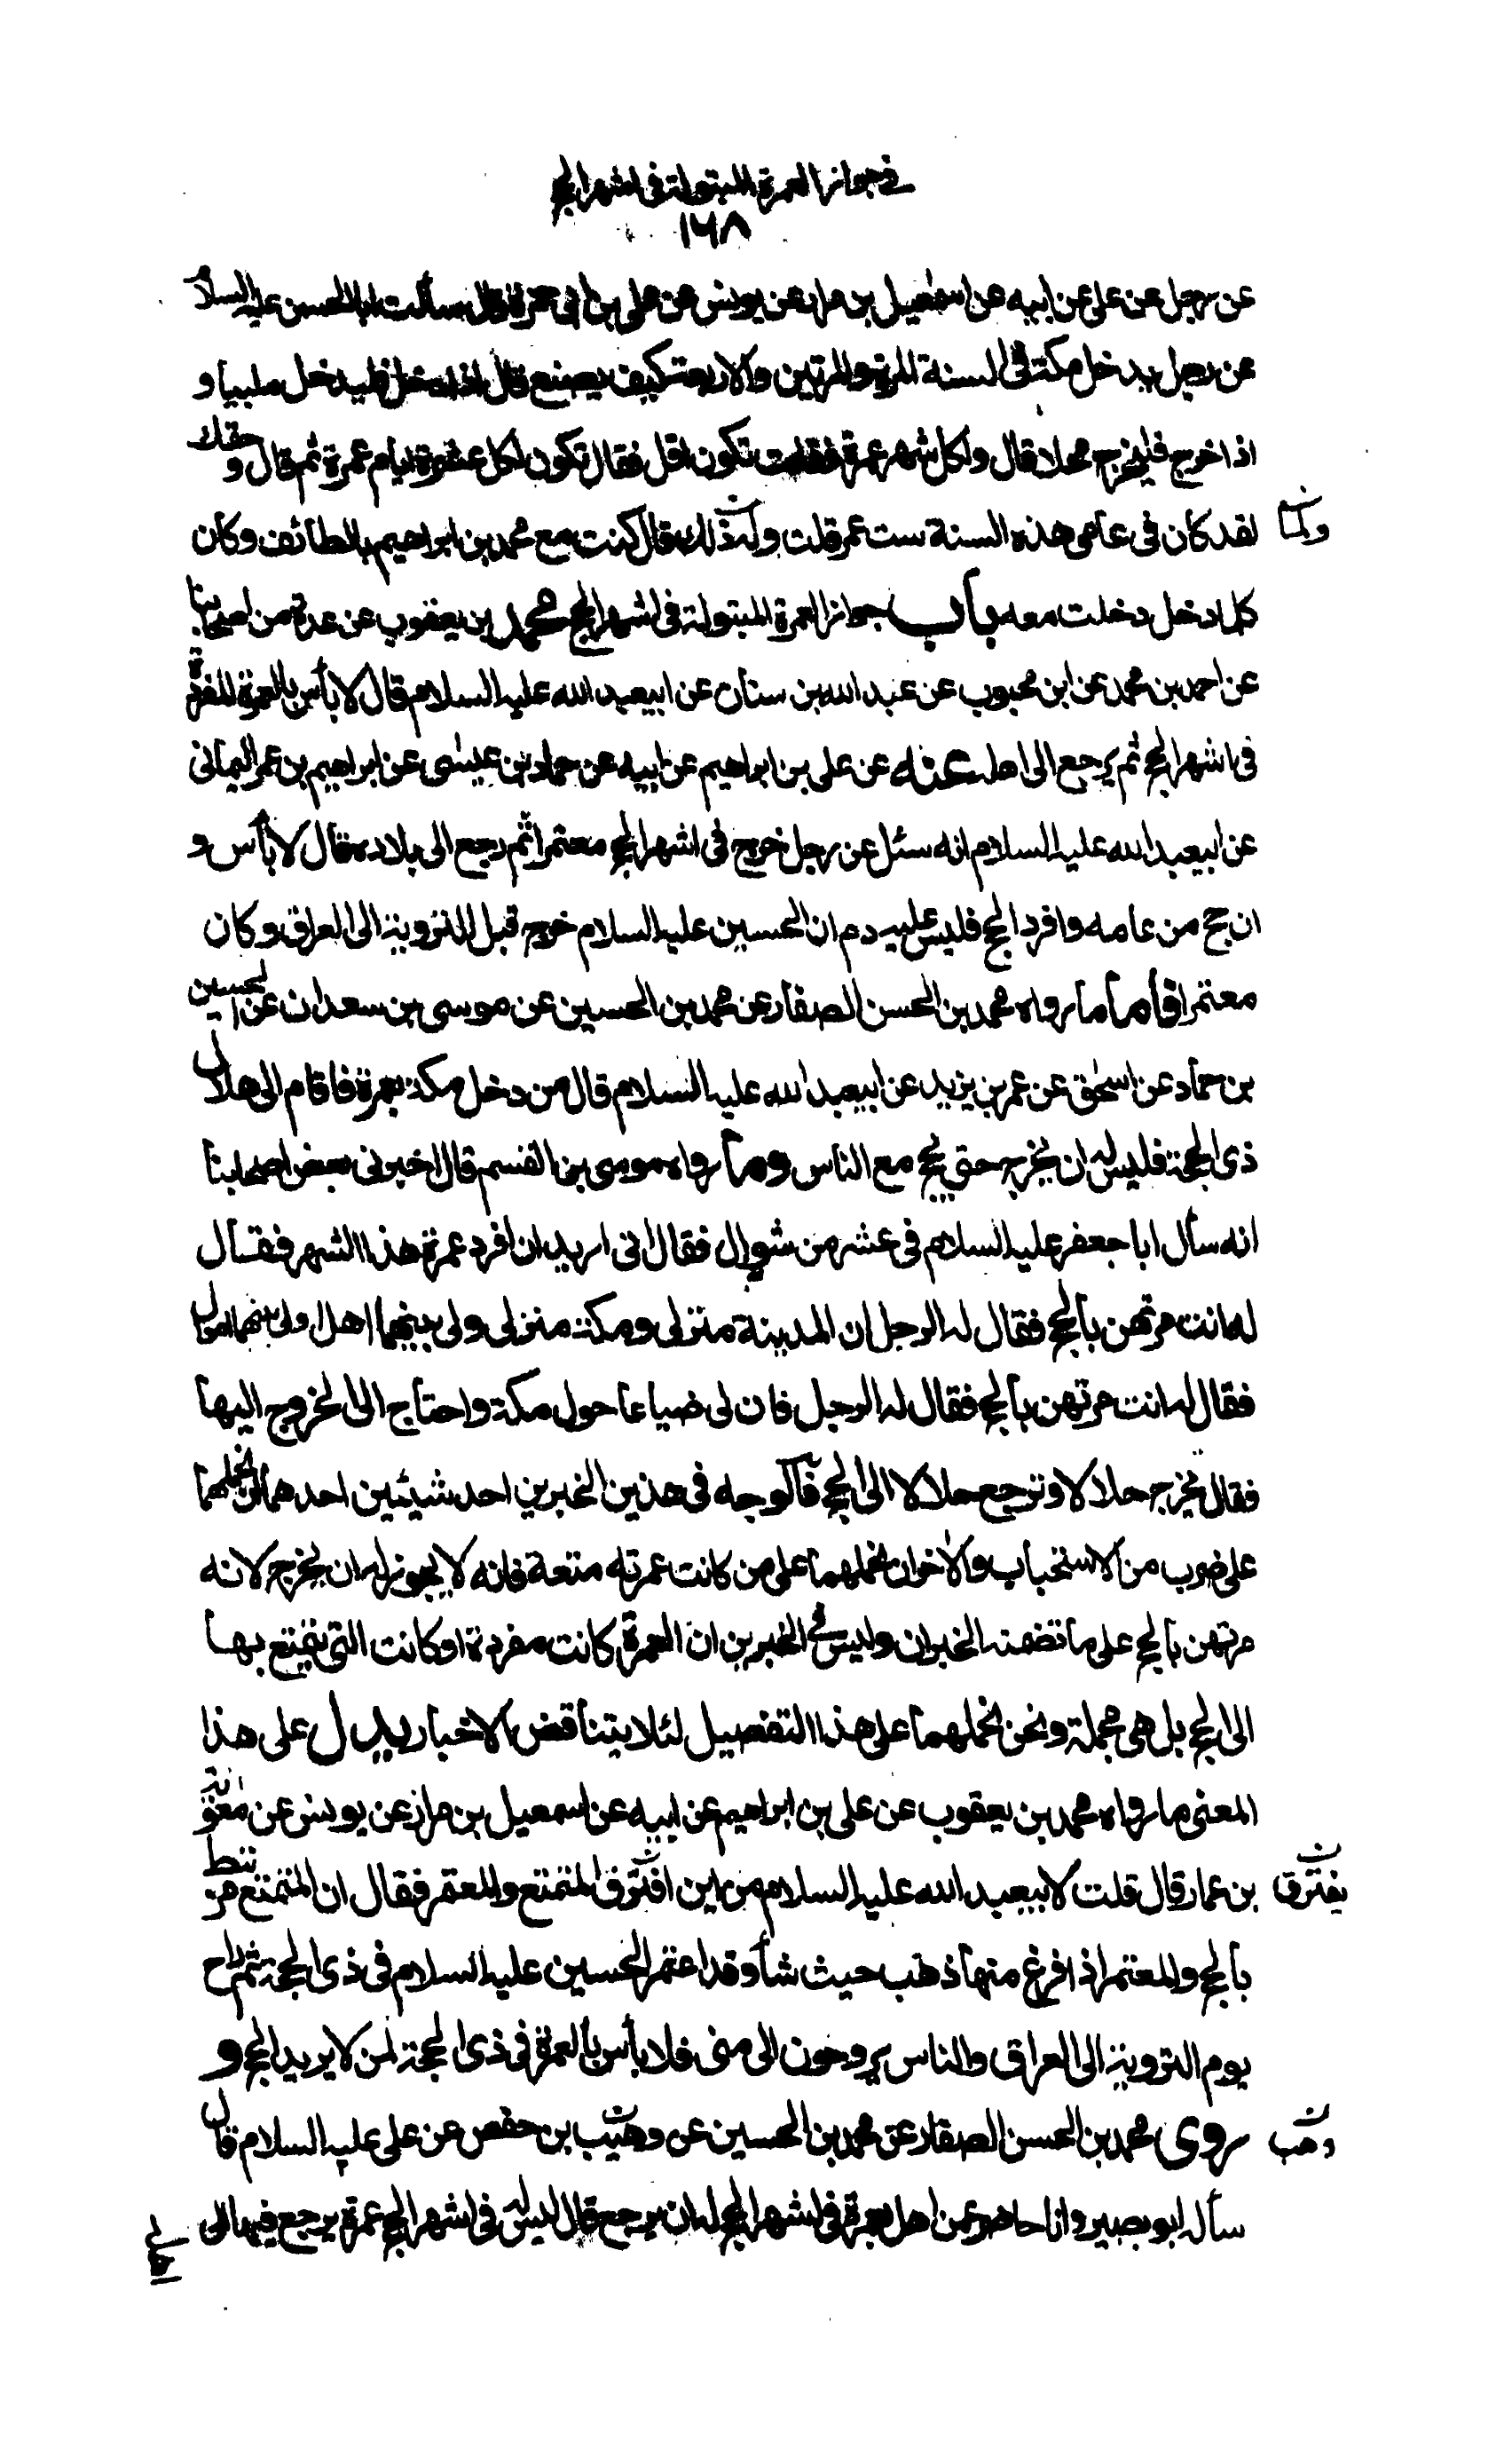 في جواز العمرة المبتولة في اشهر الحج
١٦٨
عن رجل عن علي عن ابيه عن اسمعيل بن مرار عن يونس عن علي بن ابي حمزة قال سألت ابا الحسن عليه السلام
عن رجل يدخل مكة في السنة المرة والمرتين والاربعة كيف يصنع قال اذا دخل فليدخل ملبيا و
اذا خرج فليخرج محلا قال ولكل شهر عمرة فقلت تكون اقل فقال تكون لكل عشرة ايام عمرة ثم قال وحقك
لقد كان في عامي هذه السنة ست عمر قلت ولم ذلك قال كنت مع محمد بن ابراهيم بالطائف وكان
كلما دخل دخلت معه باب جواز العمرة المبتولة في اشهر الحج محمد بن يعقوب عن عدة من اصحابنا
عن احمد بن محمد عن ابن محبوب عن عبد الله بن سنان عن ابيعبد الله عليه السلام قال لا بأس بالعمرة المفردة
في اشهر الحج ثم يرجع الى اهله عنه عن علي بن ابراهيم عن ابيه عن حماد بن عيسى عن ابراهيم بن عمر اليماني
عن ابيعبد الله عليه السلام انه سئل عن رجل خرج في اشهر الحج معتمرا ثم رجع الى بلاده قال لا بأس و
ان حج من عامه وافرد الحج فليس عليه دم ان الحسين عليه السلام خرج قبل التروية الى العراق وكان
معتمرا فأما ما رواه محمد بن الحسن الصفار عن محمد بن الحسين عن موسى بن سعدان عن الحسين
بن حماد عن اسحق عن عمر بن يزيد عن ابيعبد الله عليه السلام قال من دخل مكة بعمرة فاقام الى هلال
ذي الحجة فليس له ان يخرج حتى يحج مع الناس وما رواه موسى بن القسم قال اخبرني بعض اصحابنا
انه سأل ابا جعفر عليه السلام في عشر من شوال فقال اني اريد ان افرد عمرة هذا الشهر فقال
له انت مرتهن بالحج فقال له الرجل ان المدينة منزلي ومكة منزلي ولي بينهما اهل ولي بينهما اموال
فقال له انت مرتهن بالحج فقال له الرجل فان لي ضياعا حول مكة واحتاج الى الخروج اليها
فقال تخرج حلالا وترجع حلالا الى الحج فالوجه في هذين الخبرين احد شيئين احدهما ان نحملهما
على ضرب من الاستحباب والآخر ان نحملهما على من كانت عمرته متعة فانه لا يجوز له ان يخرج لانه
مرتهن بالحج على ما تضمنه الخبران وليس في الخبرين ان العمرة كانت مفردة او كانت التي يتمتع بها
الى الحج بل هي مجملة ونحن نحملهما على هذا التفصيل لئلا يتناقض الاخبار يدل على هذا
المعنى ما رواه محمد بن يعقوب عن علي بن ابراهيم عن ابيه عن اسمعيل بن مرار عن يونس عن معوية
بن عمار قال قلت لابيعبد الله عليه السلام من اين افترق المتمتع والمعتمر فقال ان المتمتع مرتبط
يفترق
بالحج والمعتمر اذا فرغ منها ذهب حيث شاء وقد اعتمر الحسين عليه السلام في ذي الحجة ثم راح
يوم التروية الى العراق والناس يروحون الى منى فلا بأس بالعمرة في ذي الحجة لمن لا يريد الحج و
روى محمد بن الحسن الصفار عن محمد بن الحسين عن وهيب بن حفص عن علي عليه السلام قال
وهب
سأله ابو بصير وانا حاضر عمن اهل بعمرة في اشهر الحج له ان يرجع قال ليس في اشهر الحج عمرة يرجع فيها الى